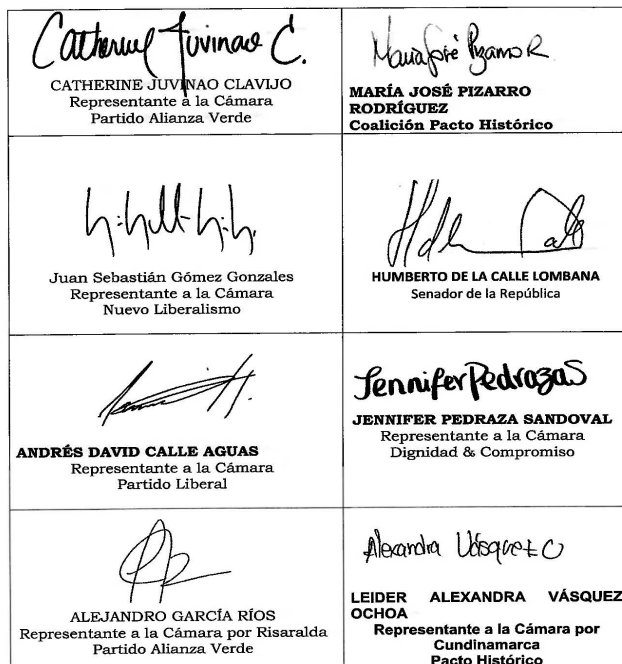 Catherine Juvinao C.
CATHERINE JUVINAO CLAVIJO
Representante a la Cámara
Partido Alianza Verde
María José Pizarro R
MARÍA JOSÉ PIZARRO
RODRÍGUEZ
Coalición Pacto Histórico
Juan Sebastián Gómez Gonzales
Representante a la Cámara
Nuevo Liberalismo
HUMBERTO DE LA CALLE LOMBANA
Senador de la República
ANDRÉS DAVID CALLE AGUAS
Representante a la Cámara
Partido Liberal
Jennifer Pedraza S
JENNIFER PEDRAZA SANDOVAL
Representante a la Cámara
Dignidad & Compromiso
ALEJANDRO GARCÍA RÍOS
Representante a la Cámara por Risaralda
Partido Alianza Verde
Alexandra Vásquez O
LEIDER ALEXANDRA VÁSQUEZ
OCHOA
Representante a la Cámara por
Cundinamarca
Pacto Histórico